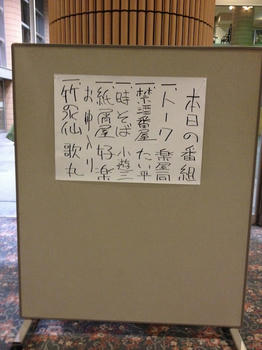 本日の番組
一、トーク 楽屋同
一、禁酒番屋 たい平
一、時そば 小遊三
一、紙屑屋 好楽
お仲入り
一、竹の水仙 歌丸